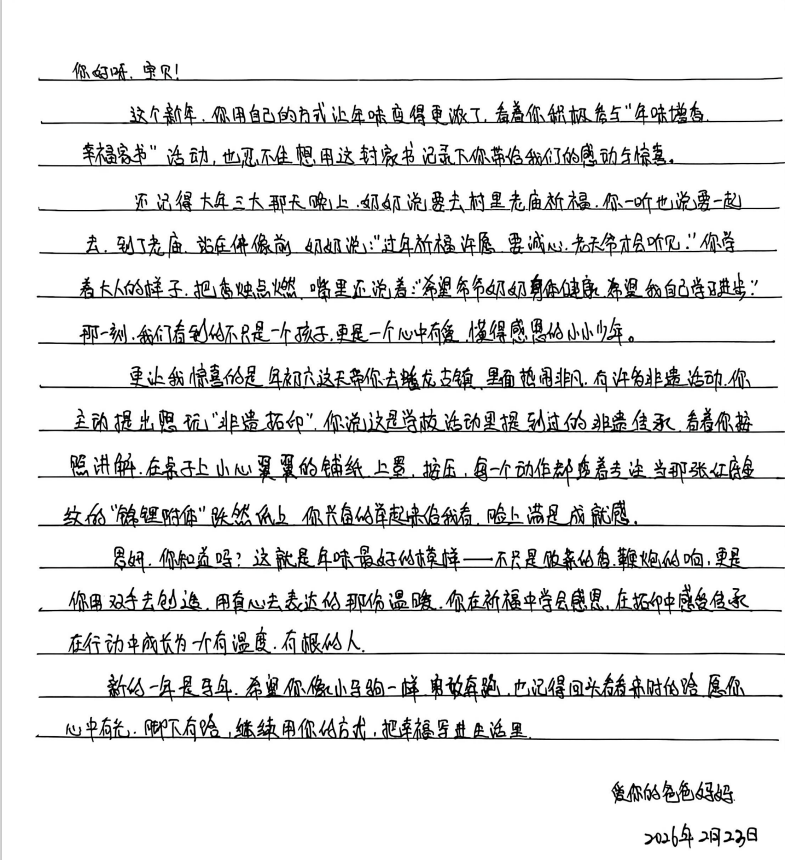 你好呀,宝贝!
这个新年,你用自己的方式让年味变得更浓了,看着你积极参与“年味增香,
幸福家书”活动,也忍不住想用这封家书记录下你带给我们的感动与惊喜。
还记得大年三十那天晚上,奶奶说要去村里老庙祈福,你一听也说要一起
去,到了老庙,站在佛像前,奶奶说:“过年祈福许愿,要诚心,老天爷才会听见。”你学
着大人的样子,把香烛点燃,嘴里还说着:“希望爷爷奶奶身体健康,希望我自己学习进步。”
那一刻,我们看到的不只是一个孩子,更是一个心中有爱,懂得感恩的小小少年。
更让我惊喜的是年初六这天带你去蟠龙古镇,里面热闹非凡,有许多非遗活动,你
主动提出想玩“非遗拓印”,你说这是学校活动里提到过的非遗传承,看着你按
照讲解,在桌子上小心翼翼的铺纸,上墨,按压,每一个动作都透着专注,当那张红底金
纹的“锦鲤附体”跃然纸上,你兴奋的举起来给我看,脸上满是成就感。
,你知道吗?这就是年味最好的模样——不只是饭菜的香,鞭炮的响,更是
你用双手去创造,用真心去表达的那份温暖,你在祈福中学会感恩,在拓印中感受传承
在行动中成长为一个有温度,有根的人.
新的一年是马年,希望你像小马驹一样勇敢奔跑,也记得回头看看来时的路,愿你
心中有光,脚下有路,继续用你的方式,把幸福写进生活里.
爱你的爸爸妈妈
2026年2月23日